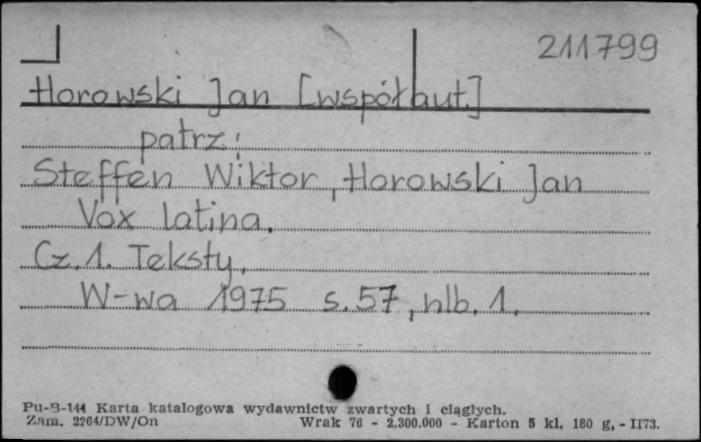 211799
Horowski Jan [współaut.]
patrz:
Steffen Wiktor, Horowski Jan
Vox latina.
Cz. 1. Teksty.
W-wa 1975 s. 57, nlb. 1.
Pu-B-144 Karta katalogowa wydawnictw zwartych i ciągłych.
Zam. 2264/DW/On Wrak 76 - 2.300.000 - Karton 5 kl. 180 g, - II73.